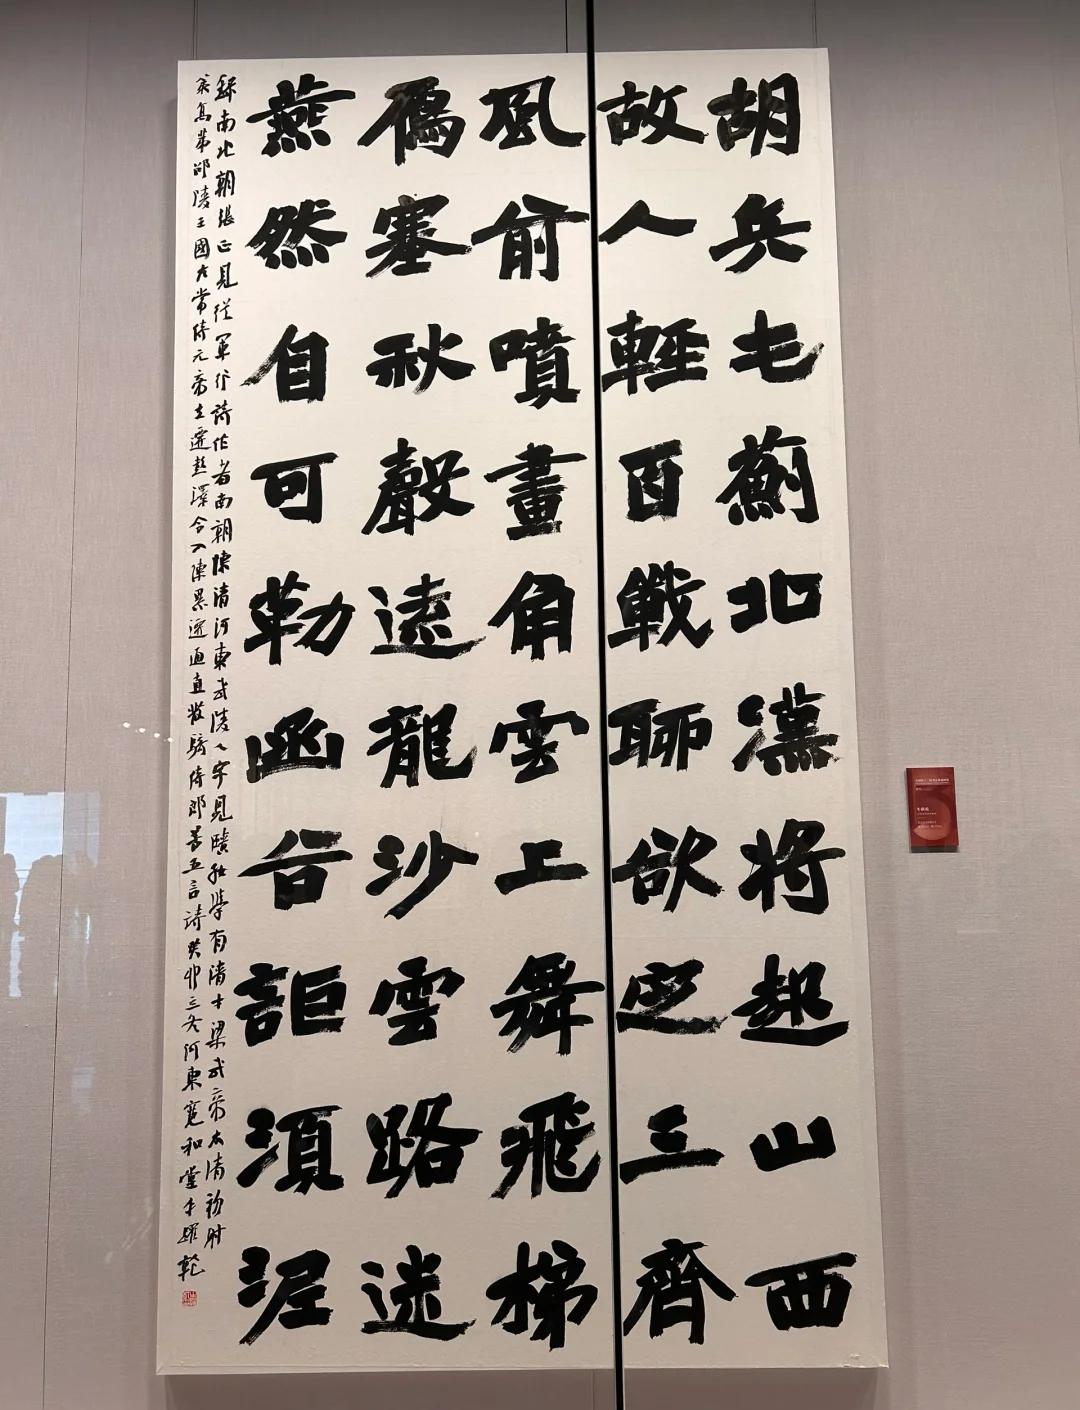 胡兵屯薊北漢將起山西
故人輕百戰聊欲定三齊
風前噴畫角雲上舞飛梯
鴈塞秋聲遠龍沙雲路迷
燕然自可勒函谷詎須泥
錄南北朝張正見從軍行詩作者南朝陳清河東武陵人字見賾好學有清才梁武帝太清初射
策高第邵陵王國左常侍元帝立遷彭澤令入陳累遷通直散騎侍郎善五言詩癸卯三冬河東寬和堂牛躍乾